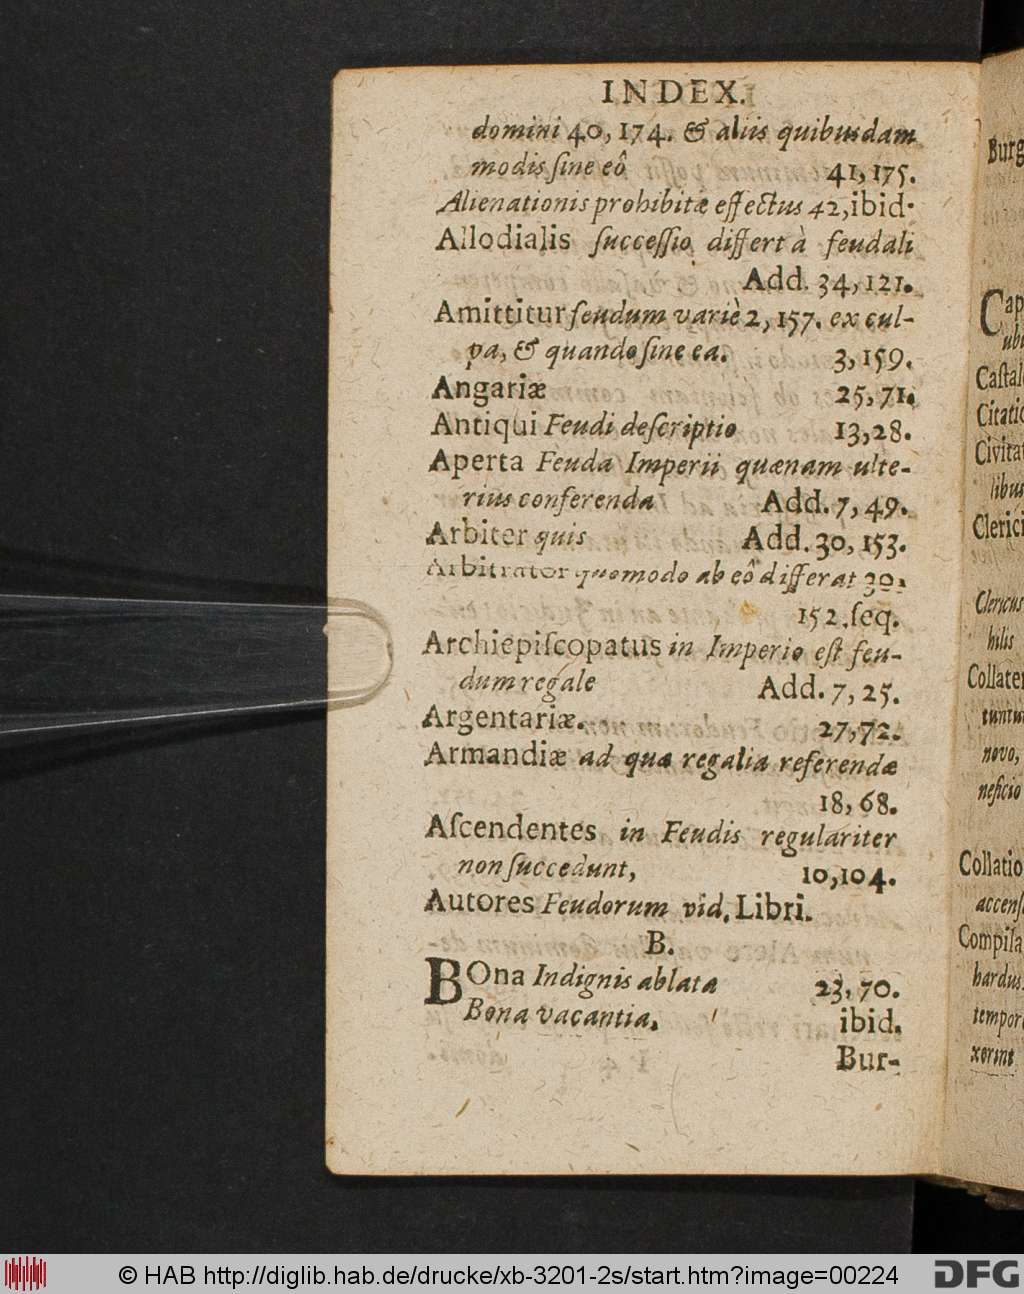 INDEX.
domini 40, 174. & aliis quibusdam
modis ſine eô 41, 175.
Alienationis prohibitæ effectus 42, ibid.
Allodialis ſucceſſio differt à feudali
Add. 34, 121.
Amittitur feudum variè 2, 157. ex cul-
pa, & quando ſine ea. 3, 159.
Angariæ 25, 71.
Antiqui Feudi deſcriptio 13, 28.
Aperta Feuda Imperii quænam ulte-
rius conferenda Add. 7, 49.
Arbiter quis Add. 30, 153.
Arbitrator quomodo ab eô differat 30,
152. ſeq.
Archiepiſcopatus in Imperio eſt feu-
dum regale Add. 7, 25.
Argentariæ. 27, 72.
Armandiæ ad quæ regalia referendæ
18, 68.
Aſcendentes in Feudis regulariter
non ſuccedunt, 10, 104.
Autores Feudorum vid. Libri.
B.
BOna Indignis ablata 23, 70.
Bona vacantia. ibid.
Bur-
Burg
Cap
ubi
Caſtal
Citatio
Civita
libus
Clerici
Clericus
hilis
Collate
tuntu
novo,
neficio
Collatio
accenſ
Compila
hardus
tempor
xerint
© HAB http://diglib.hab.de/drucke/xb-3201-2s/start.htm?image=00224
DFG